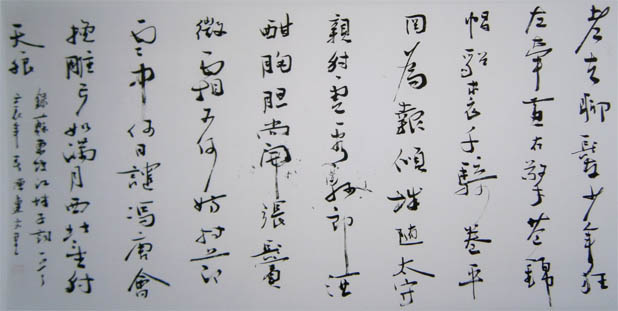 老夫聊發少年狂
左牽黃右擎蒼錦
帽貂裘千騎卷平
岡為報傾城隨太守
親射虎看孫郎酒
酣胸胆尚開張鬢
微霜又何妨持節
雲中何日遣馮唐會
挽雕弓如滿月西北望射
天狼
錄蘇東坡江城子詞
壬辰年